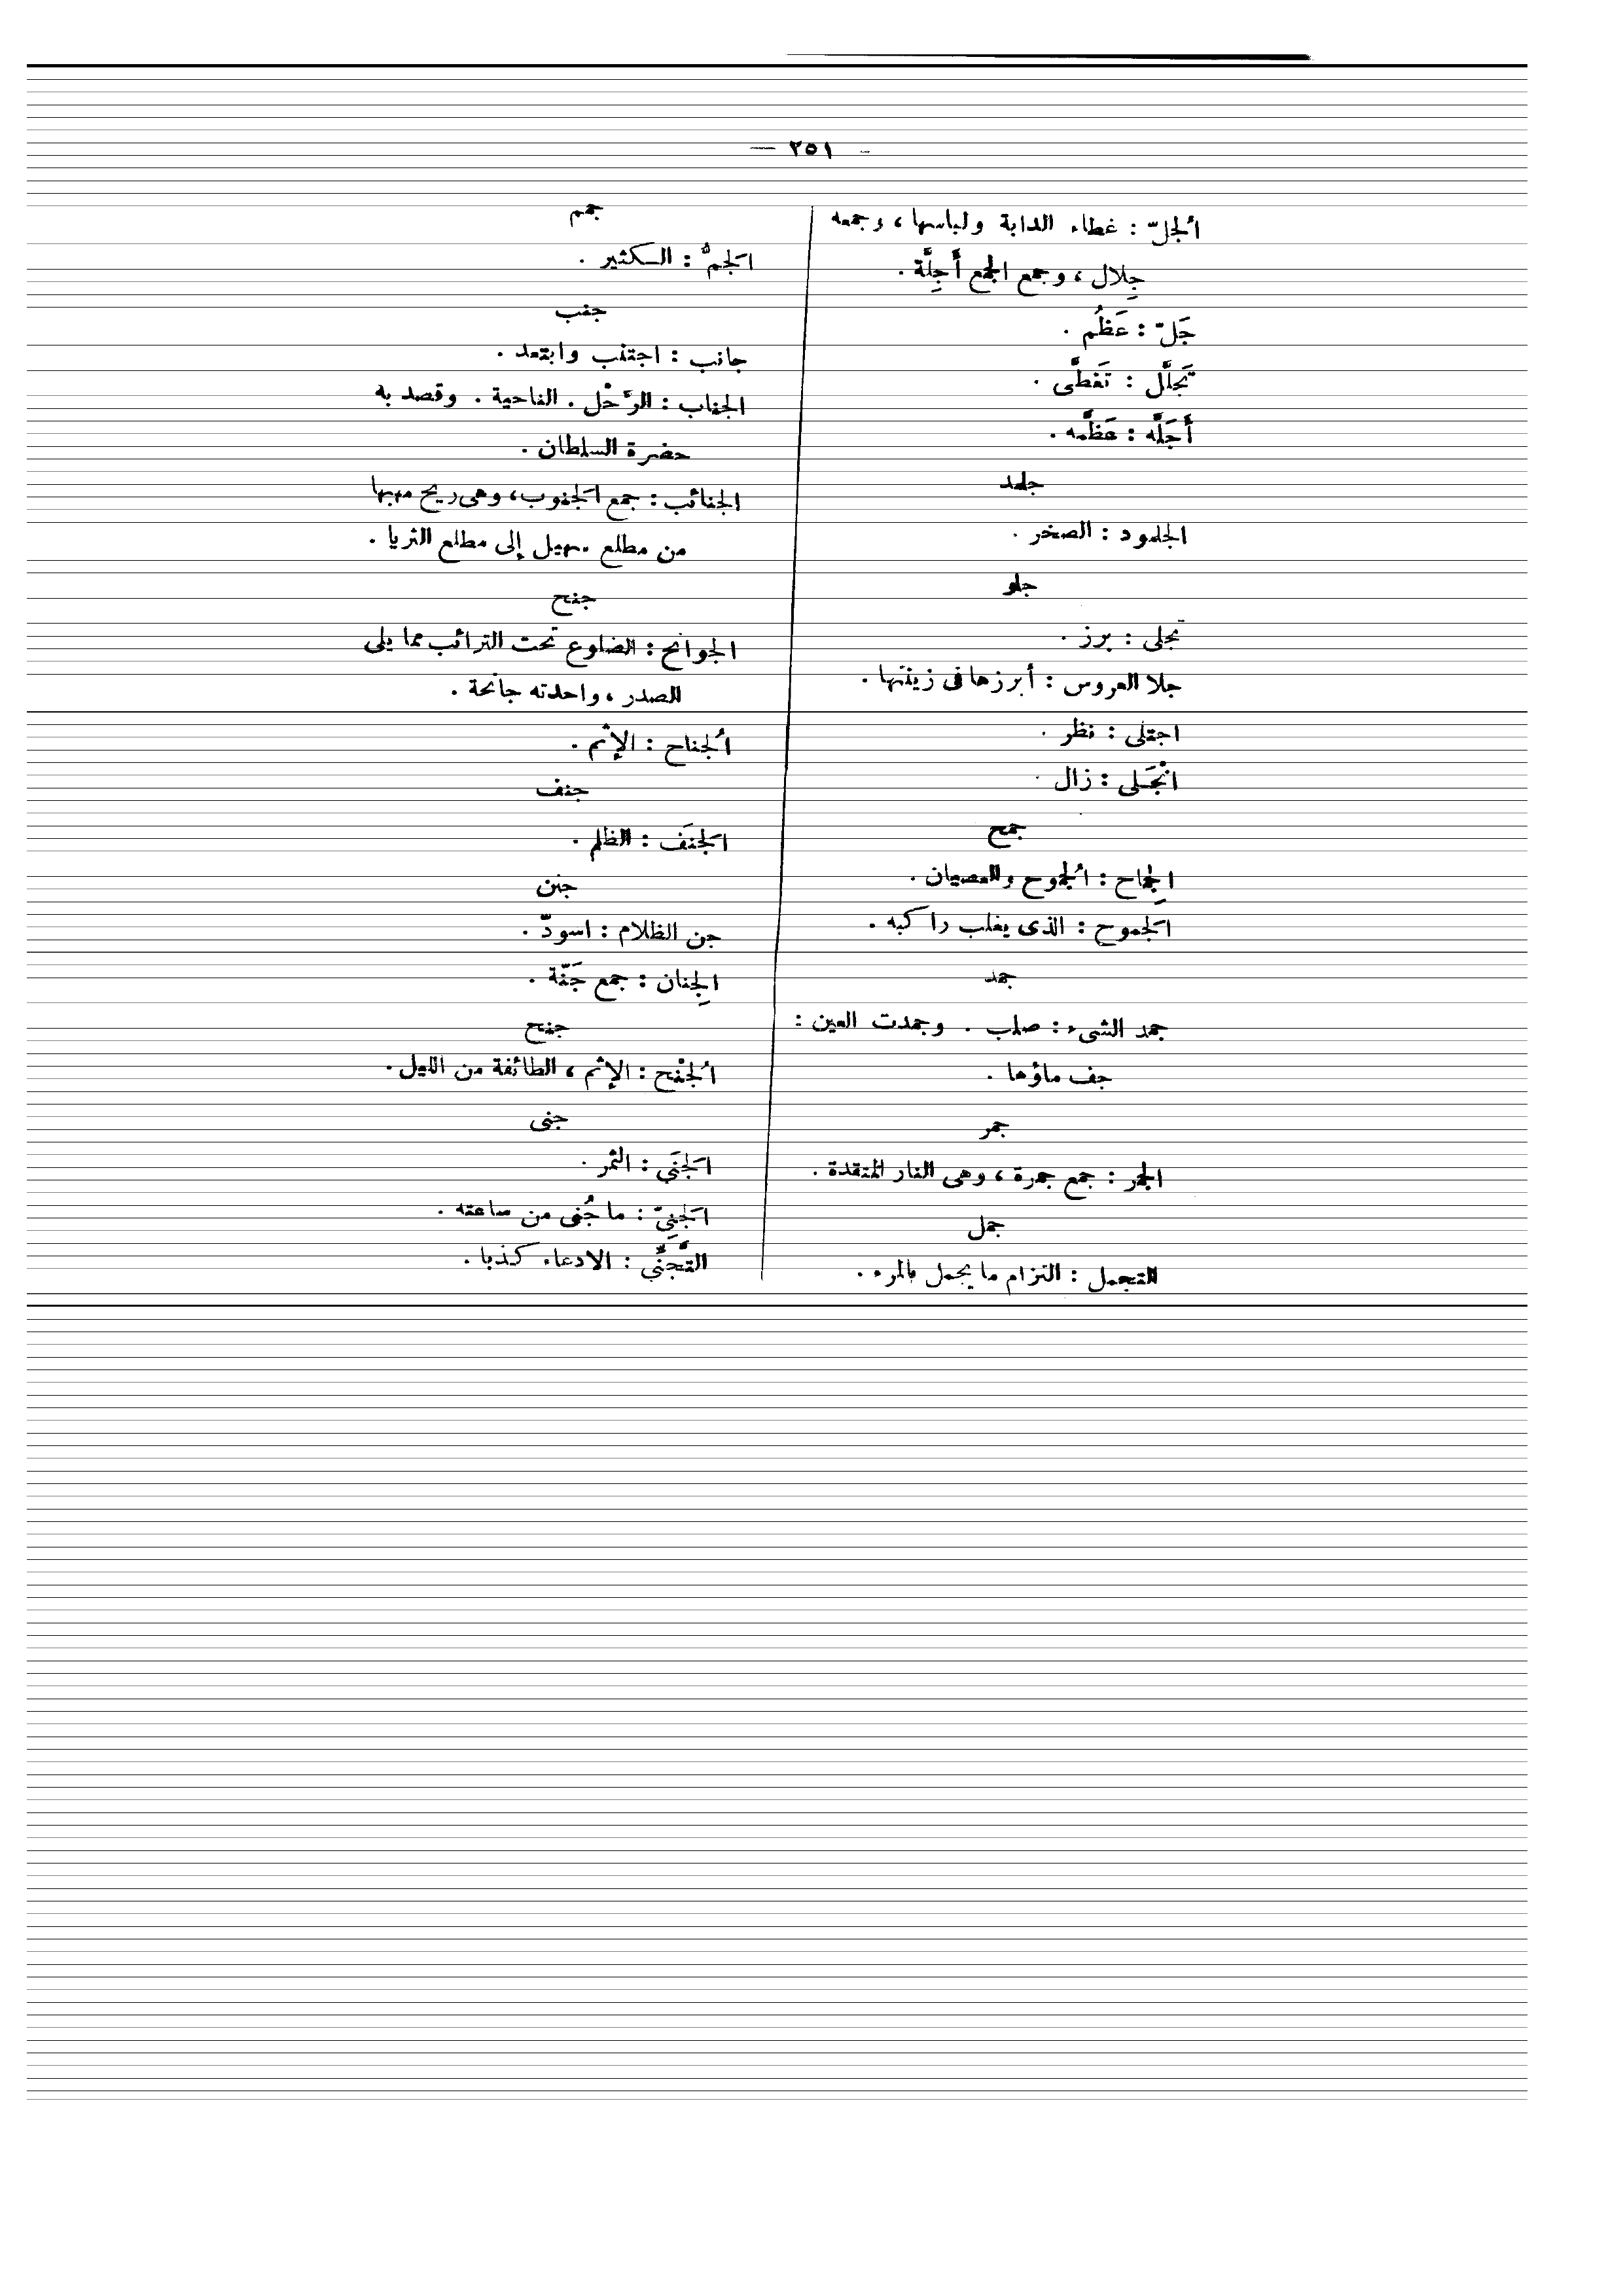 — ٢٥١ —
اُلجلّ : غطاء الدابة ولباسها ، وجمعه
جِلال ، وجمع الجمع أَجِلَّة .
جَلّ : عَظُم .
تَجلَّل : تَغطَّى .
أَجَلَّه : عَظَّمه .
جلمد
الجلمود : الصخر .
جلو
تجلى : برز .
جلا العروس : أبرزها فى زينتها .
اجتلى : نظر .
انْجَلى : زال .
جمح
اِلجماح : اُلجموح والعصيان .
اَلجموح : الذى يغلب راكبه .
جمد
جمد الشىء : صلب . وجمدت العين :
جف ماؤها .
جمر
الجمر : جمع جمرة ، وهى النار المتقدة .
جمل
التجمل : التزام ما يجمل بالمرء .
جمم
اَلجمُّ : الكثير .
جنب
جانب : اجتنب وابتعد .
الجناب : الرَّحْل . الناحية . وقصد به
حضرة السلطان .
الجنائب : جمع اَلجنوب ، وهى ريح مهبها
من مطلع سهيل إلى مطلع الثريا .
جنح
الجوانح : الضلوع تحت الترائب مما يلى
الصدر ، واحدته جانحة .
اُلجناح : الإثم .
جنف
اَلجنَف : الظلم .
جنن
جن الظلام : اسودّ .
اِلجنان : جمع جَنّة .
جنح
اُلجنْح : الإثم ، الطائفة من الليل .
جنى
اَلجنَى : الثمر .
اَلجنِىّ : ما جُنى من ساعته .
التَّجَنِّى : الادعاء كذبا .